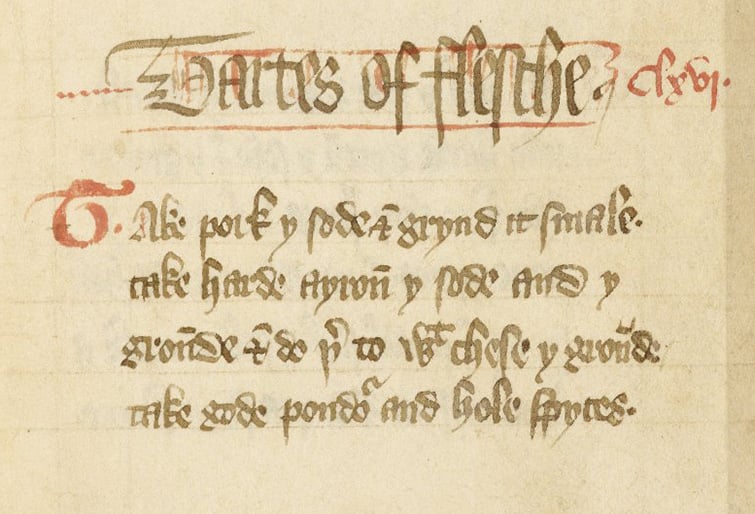 Tartes of flesche. clxvi.
Take pork y sode & grynd it smale.
take harde ayron̄ y sode and y
groūde & do þͬ to wͭ chese y groūde
take gode poudoͬ and hole spyces.